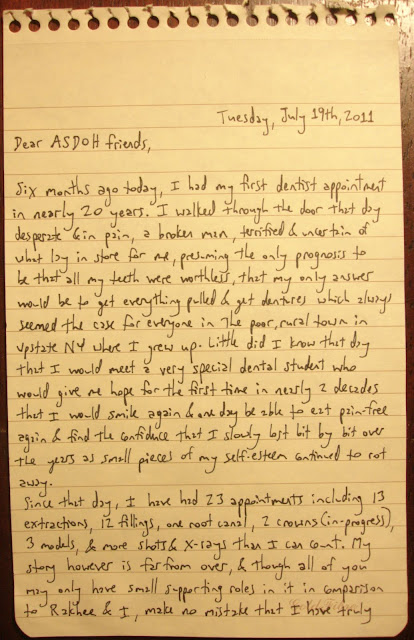 Tuesday, July 19th, 2011
Dear ASDOH friends,
Six months ago today, I had my first dentist appointment
in nearly 20 years. I walked through the door that day
desperate & in pain, a broken man, terrified & uncertain of
what lay in store for me, presuming the only prognosis to
be that all my teeth were worthless, that my only answer
would be to get everything pulled & get dentures which always
seemed the case for everyone in the poor, rural town in
upstate NY where I grew up. Little did I know that day
that I would meet a very special dental student who
would give me hope for the first time in nearly 2 decades
that I would smile again & one day be able to eat pain-free
again & find the confidence that I slowly lost bit by bit over
the years as small pieces of my self-esteem continued to rot
away.
Since that day, I have had 23 appointments including 13
extractions, 12 fillings, one root canal, 2 crowns (in-progress),
3 models, & more shots & X-rays than I can count. My
story however is far from over, & though all of you
may only have small supporting roles in it in comparison
to Rakhee & I, make no mistake that I have truly